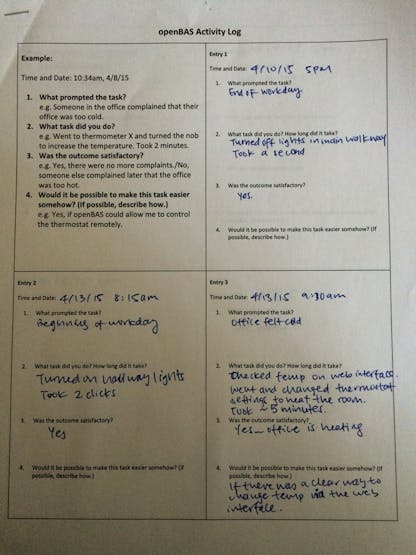 openBAS Activity Log
Example:
Time and Date: 10:34am, 4/8/15
1. What prompted the task?
e.g. Someone in the office complained that their
office was too cold.
2. What task did you do?
e.g. Went to thermometer X and turned the nob
to increase the temperature. Took 2 minutes.
3. Was the outcome satisfactory?
e.g. Yes, there were no more complaints./No,
someone else complained later that the office
was too hot.
4. Would it be possible to make this task easier
somehow? (If possible, describe how.)
e.g. Yes, if openBAS could allow me to control
the thermostat remotely.
Entry 1
Time and Date: 4/10/15 5pm
1. What prompted the task?
End of workday
2. What task did you do? How long did it take?
Turned off lights in main walkway
Took a second
3. Was the outcome satisfactory?
Yes.
4. Would it be possible to make this task easier somehow? (If
possible, describe how.)
Entry 2
Time and Date: 4/13/15 8:15am
1. What prompted the task?
Beginning of workday
2. What task did you do? How long did it take?
Turned on hallway lights
Took 2 clicks
3. Was the outcome satisfactory?
Yes
4. Would it be possible to make this task easier somehow? (If
possible, describe how.)
Entry 3
Time and Date: 4/13/15
1. What prompted the task?
Office felt cold
2. What task did you do? How long did it take?
Checked temp on web interface.
Went and changed thermostat
settings to heat the room.
Took ~5 minutes.
3. Was the outcome satisfactory?
Yes - office is heating
4. Would it be possible to make this task easier somehow? (If
possible, describe how.)
If there was a clear way to
change temp via the web
interface.